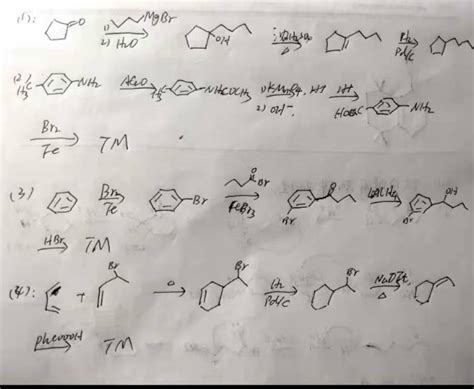 (1): =O 1) MgBr 2) H2O OH H2SO4 △ H2 Pd/C
(2) H3C NH2 Ac2O H3C NHCOCH3 1) KMnO4, H+ 2) OH- H+ HOOC NH2
Br2 Fe TM
(3) Br2 Fe Br O Br FeBr3 O Br LiAlH4 OH Br
HBr TM
(4): + Br △ Br H2 Pd/C Br NaOEt △
PhCOOOH TM